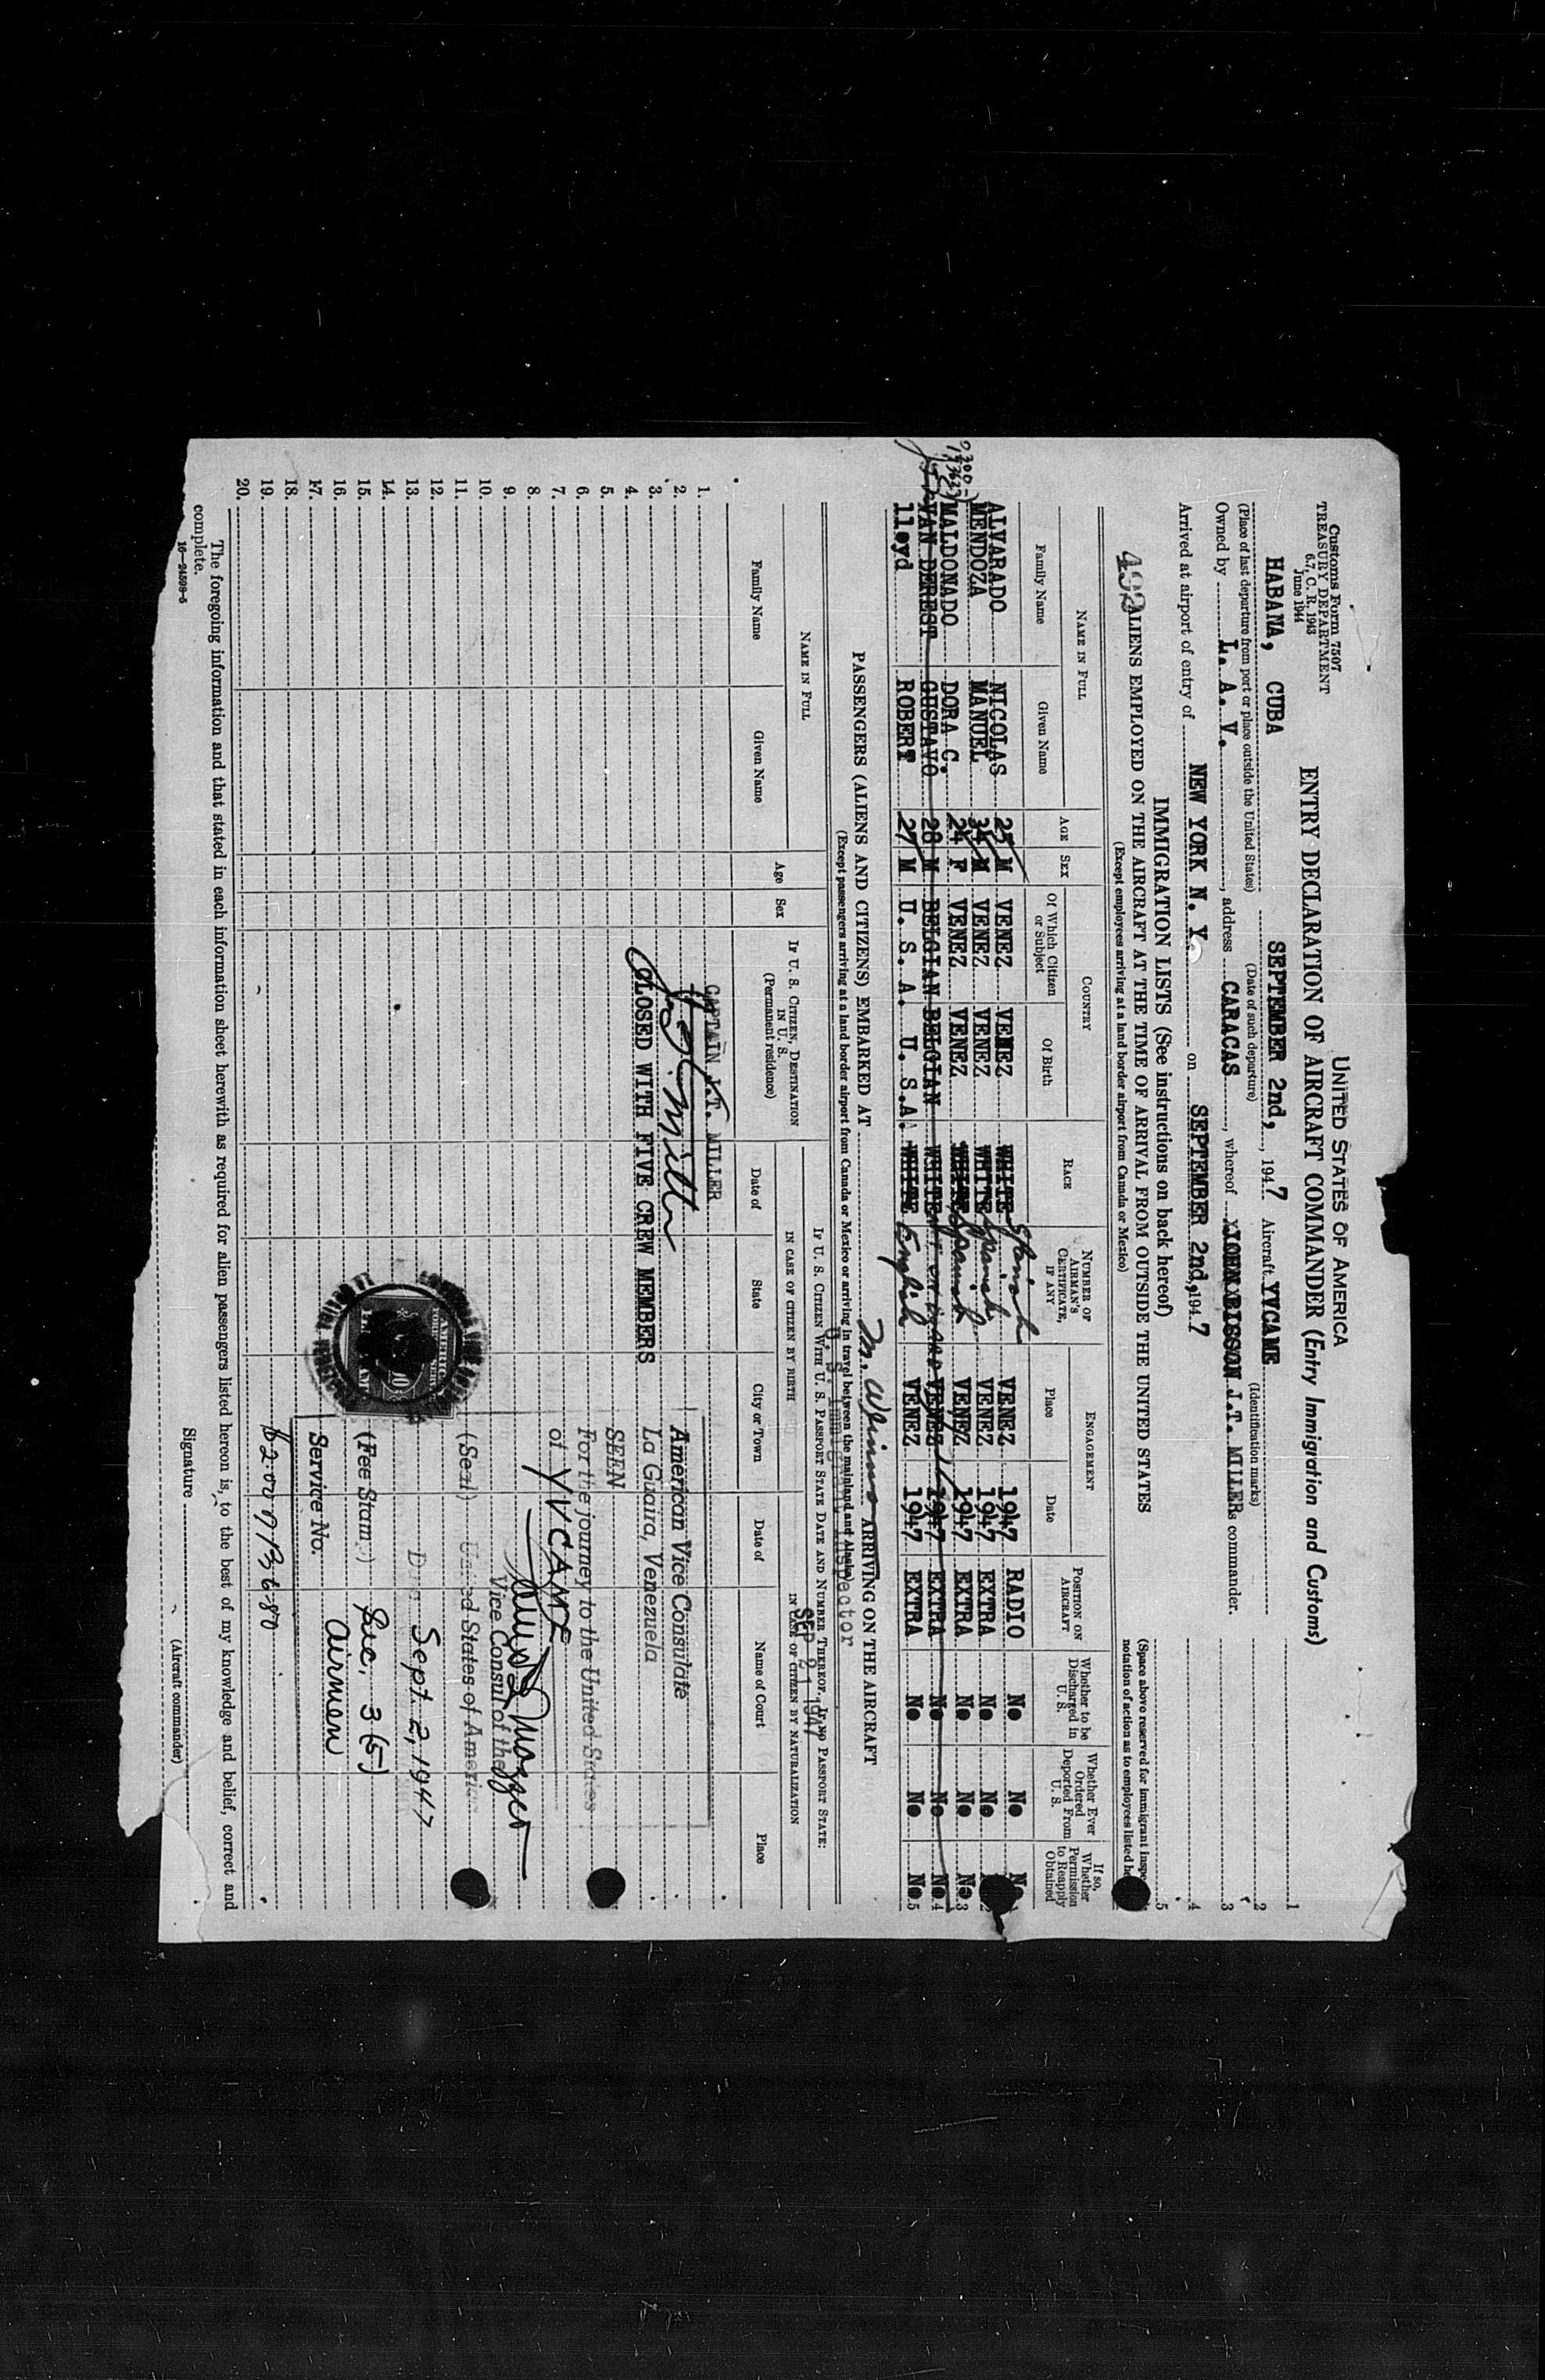 Customs Form 7507
TREASURY DEPARTMENT
6.7, C. R. 1943
June 1944
UNITED STATES OF AMERICA
ENTRY DECLARATION OF AIRCRAFT COMMANDER (Entry Immigration and Customs)
HABANA, CUBA SEPTEMBER 2nd, 1947 Aircraft YVCAME
(Place of last departure from port or place outside the United States) (Date of such departure) (Identification marks)
Owned by L. A. V. , address CARACAS , whereof J.T. MILLER is commander.
Arrived at airport of entry of NEW YORK N. Y. on SEPTEMBER 2nd, 1947
1
2
3
4
5
(Space above reserved for immigrant
notation of action as to employees listed
IMMIGRATION LISTS (See instructions on back hereof)
492
ALIENS EMPLOYED ON THE AIRCRAFT AT THE TIME OF ARRIVAL FROM OUTSIDE THE UNITED STATES
(Except employees arriving at a land border airport from Canada or Mexico)
NAME IN FULL
Family Name
Given Name
AGE
SEX
COUNTRY
Of Which Citizen or Subject
Of Birth
RACE
NUMBER OF AIRMAN'S CERTIFICATE, IF ANY
ENGAGEMENT
Place
Date
POSITION ON AIRCRAFT
Whether to be Discharged in U. S.
Whether Ever Ordered Deported From U. S.
If so, Whether Permission to Reapply Obtained
ALVARADO NICOLAS 25 M VENEZ VENEZ WHITE Spanish VENEZ 1947 RADIO No No
MENDOZA MANUEL 34 M VENEZ VENEZ WHITE Spanish VENEZ 1947 EXTRA No No
MALDONADO DORA C. 24 F VENEZ VENEZ WHITE Spanish VENEZ 1947 EXTRA No No No 3
VAN DEREST GUSTAVO 28 M BELGIAN BELGIAN WHITE VENEZ 1947 EXTRA No No No 4
lloyd ROBERT 27 M U. S. A. U. S.A. WHITE English VENEZ 1947 EXTRA No No No 5
PASSENGERS (ALIENS AND CITIZENS) EMBARKED AT ARRIVING ON THE AIRCRAFT
(Except passengers arriving at a land border airport from Canada or Mexico or arriving in travel between the mainland and Alaska)
U. S. Immigrant Inspector
SEP 21 1947
NAME IN FULL
Family Name
Given Name
Age
Sex
IF U. S. CITIZEN, DESTINATION IN U. S.
(Permanent residence)
IF U. S. CITIZEN WITH U. S. PASSPORT STATE DATE AND NUMBER THEREOF. IF NO PASSPORT STATE:
IN CASE OF CITIZEN BY BIRTH
Date of
State
City or Town
IN CASE OF CITIZEN BY NATURALIZATION
Date of
Name of Court
Place
1.
2.
3.
4.
5.
6.
7.
8.
9.
10.
11.
12.
13.
14.
15.
16.
17.
18.
19.
20.
CAPTAIN J.T. MILLER
CLOSED WITH FIVE CREW MEMBERS
American Vice Consulate
La Guaira, Venezuela
SEEN
For the journey to the United States
of YVCAME
Vice Consul of the
(Seal) United States of America
Date Sept. 2, 1947
(Fee Stamp) Sec. 3 (5)
Service No. Airmen
The foregoing information and that stated in each information sheet herewith as required for alien passengers listed hereon is, to the best of my knowledge and belief, correct and
complete.
16—24598-5
Signature
(Aircraft commander)